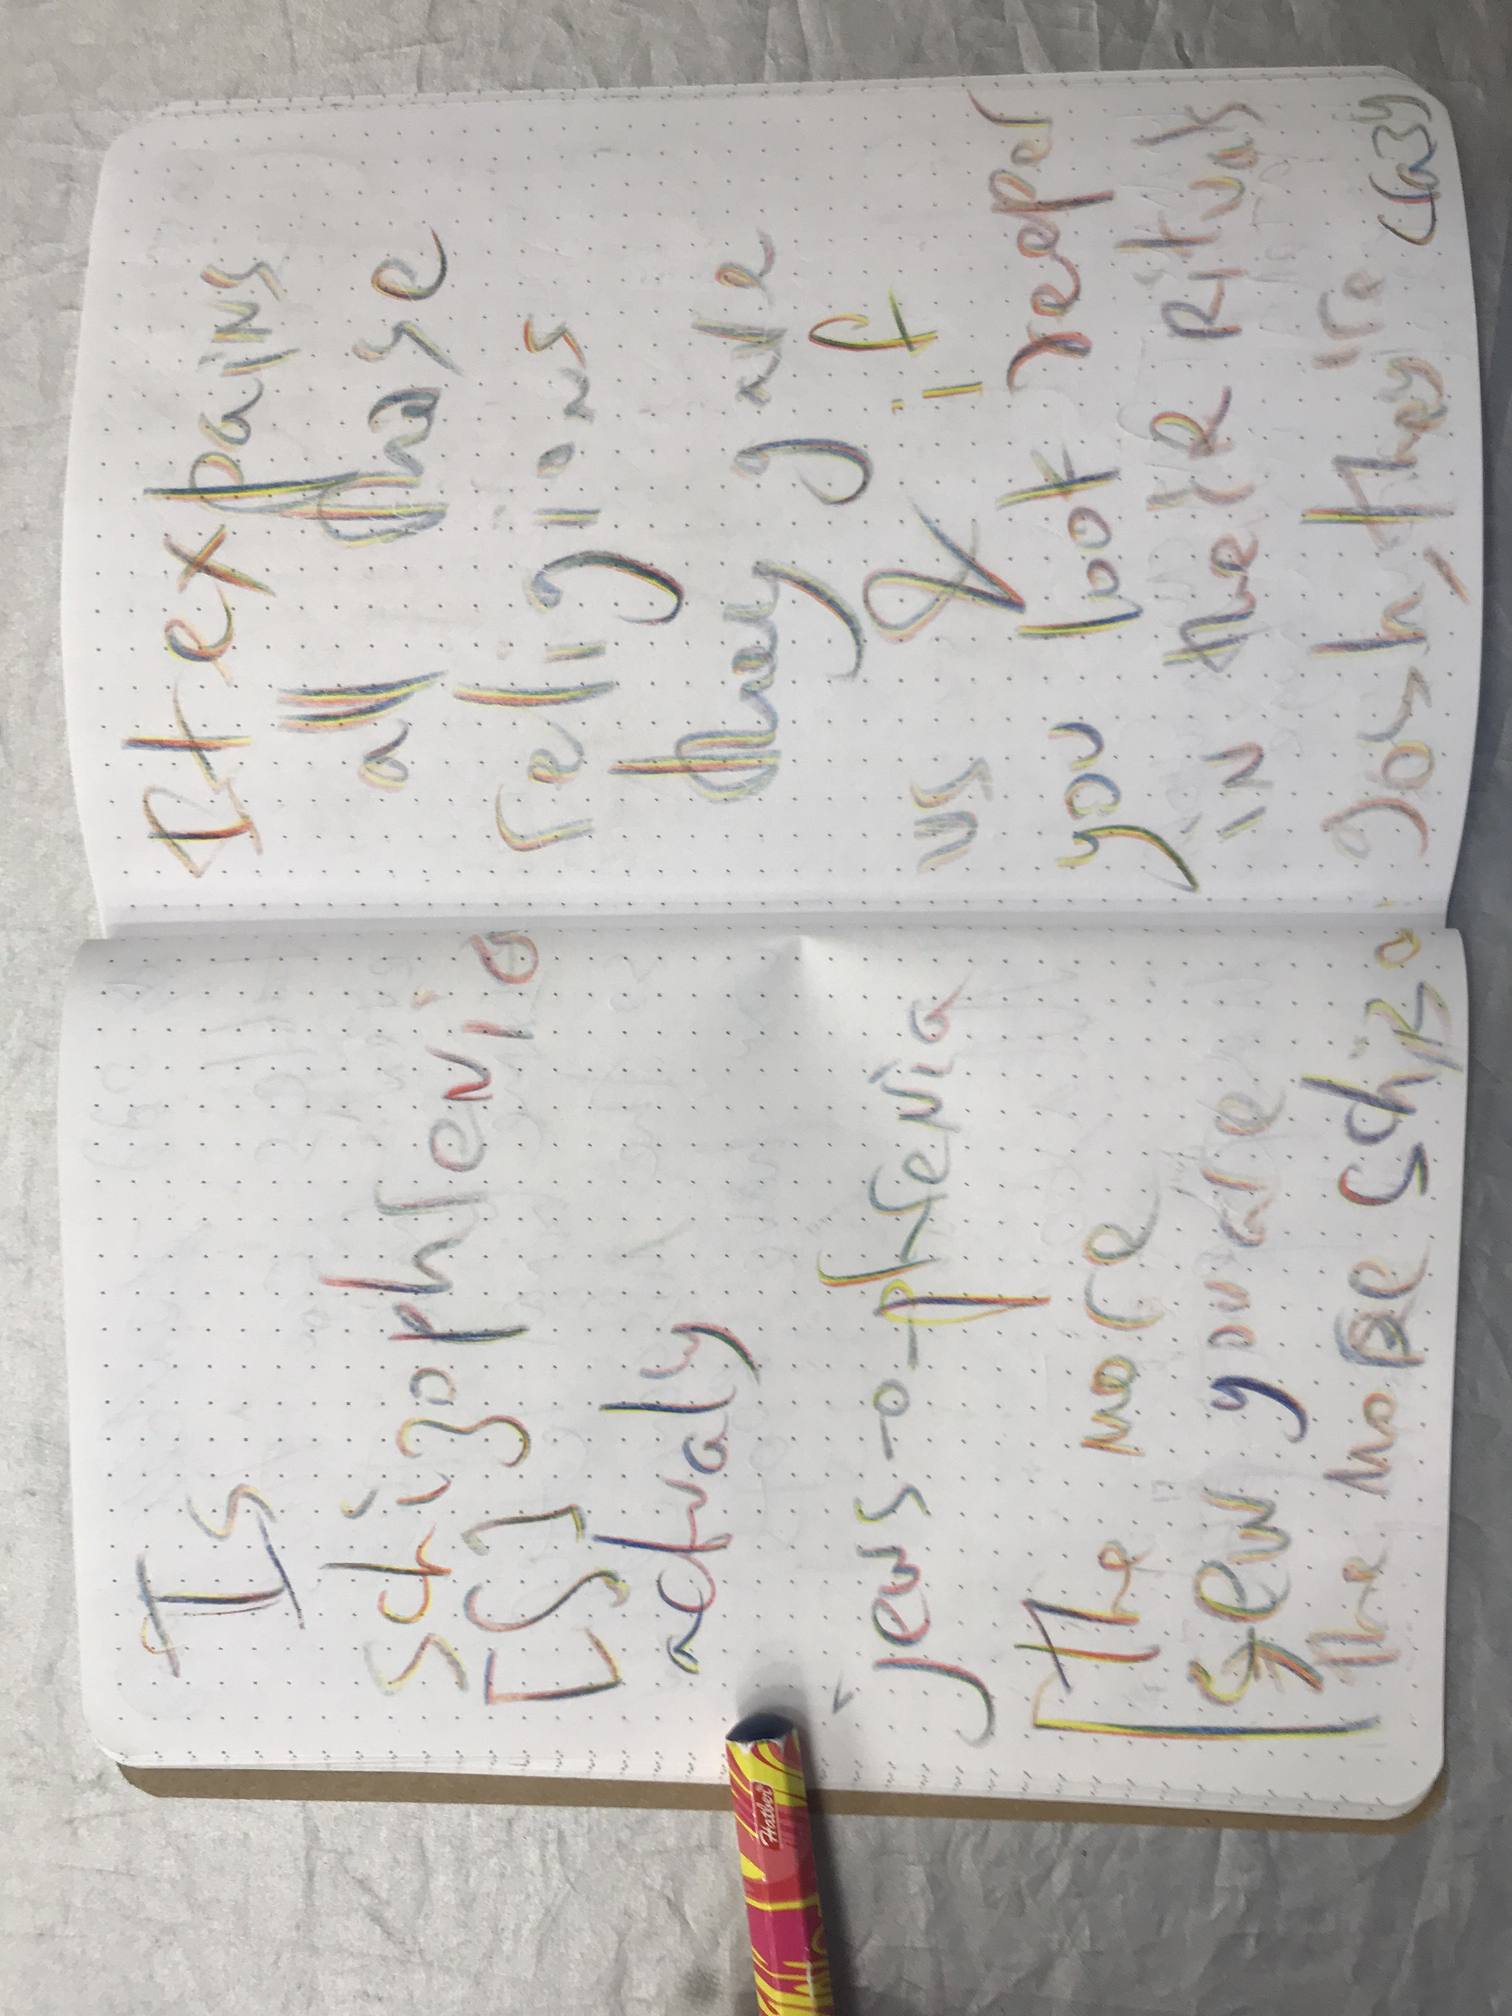 Is
schizophrenia
[S]
actualy
Jews-o-phrenia
[The more
Jew you are
The more schizo
It expains
all these
religions
they gave
us & if
you look deeper
IN their Rituals
gosh, they're crazy
Hather